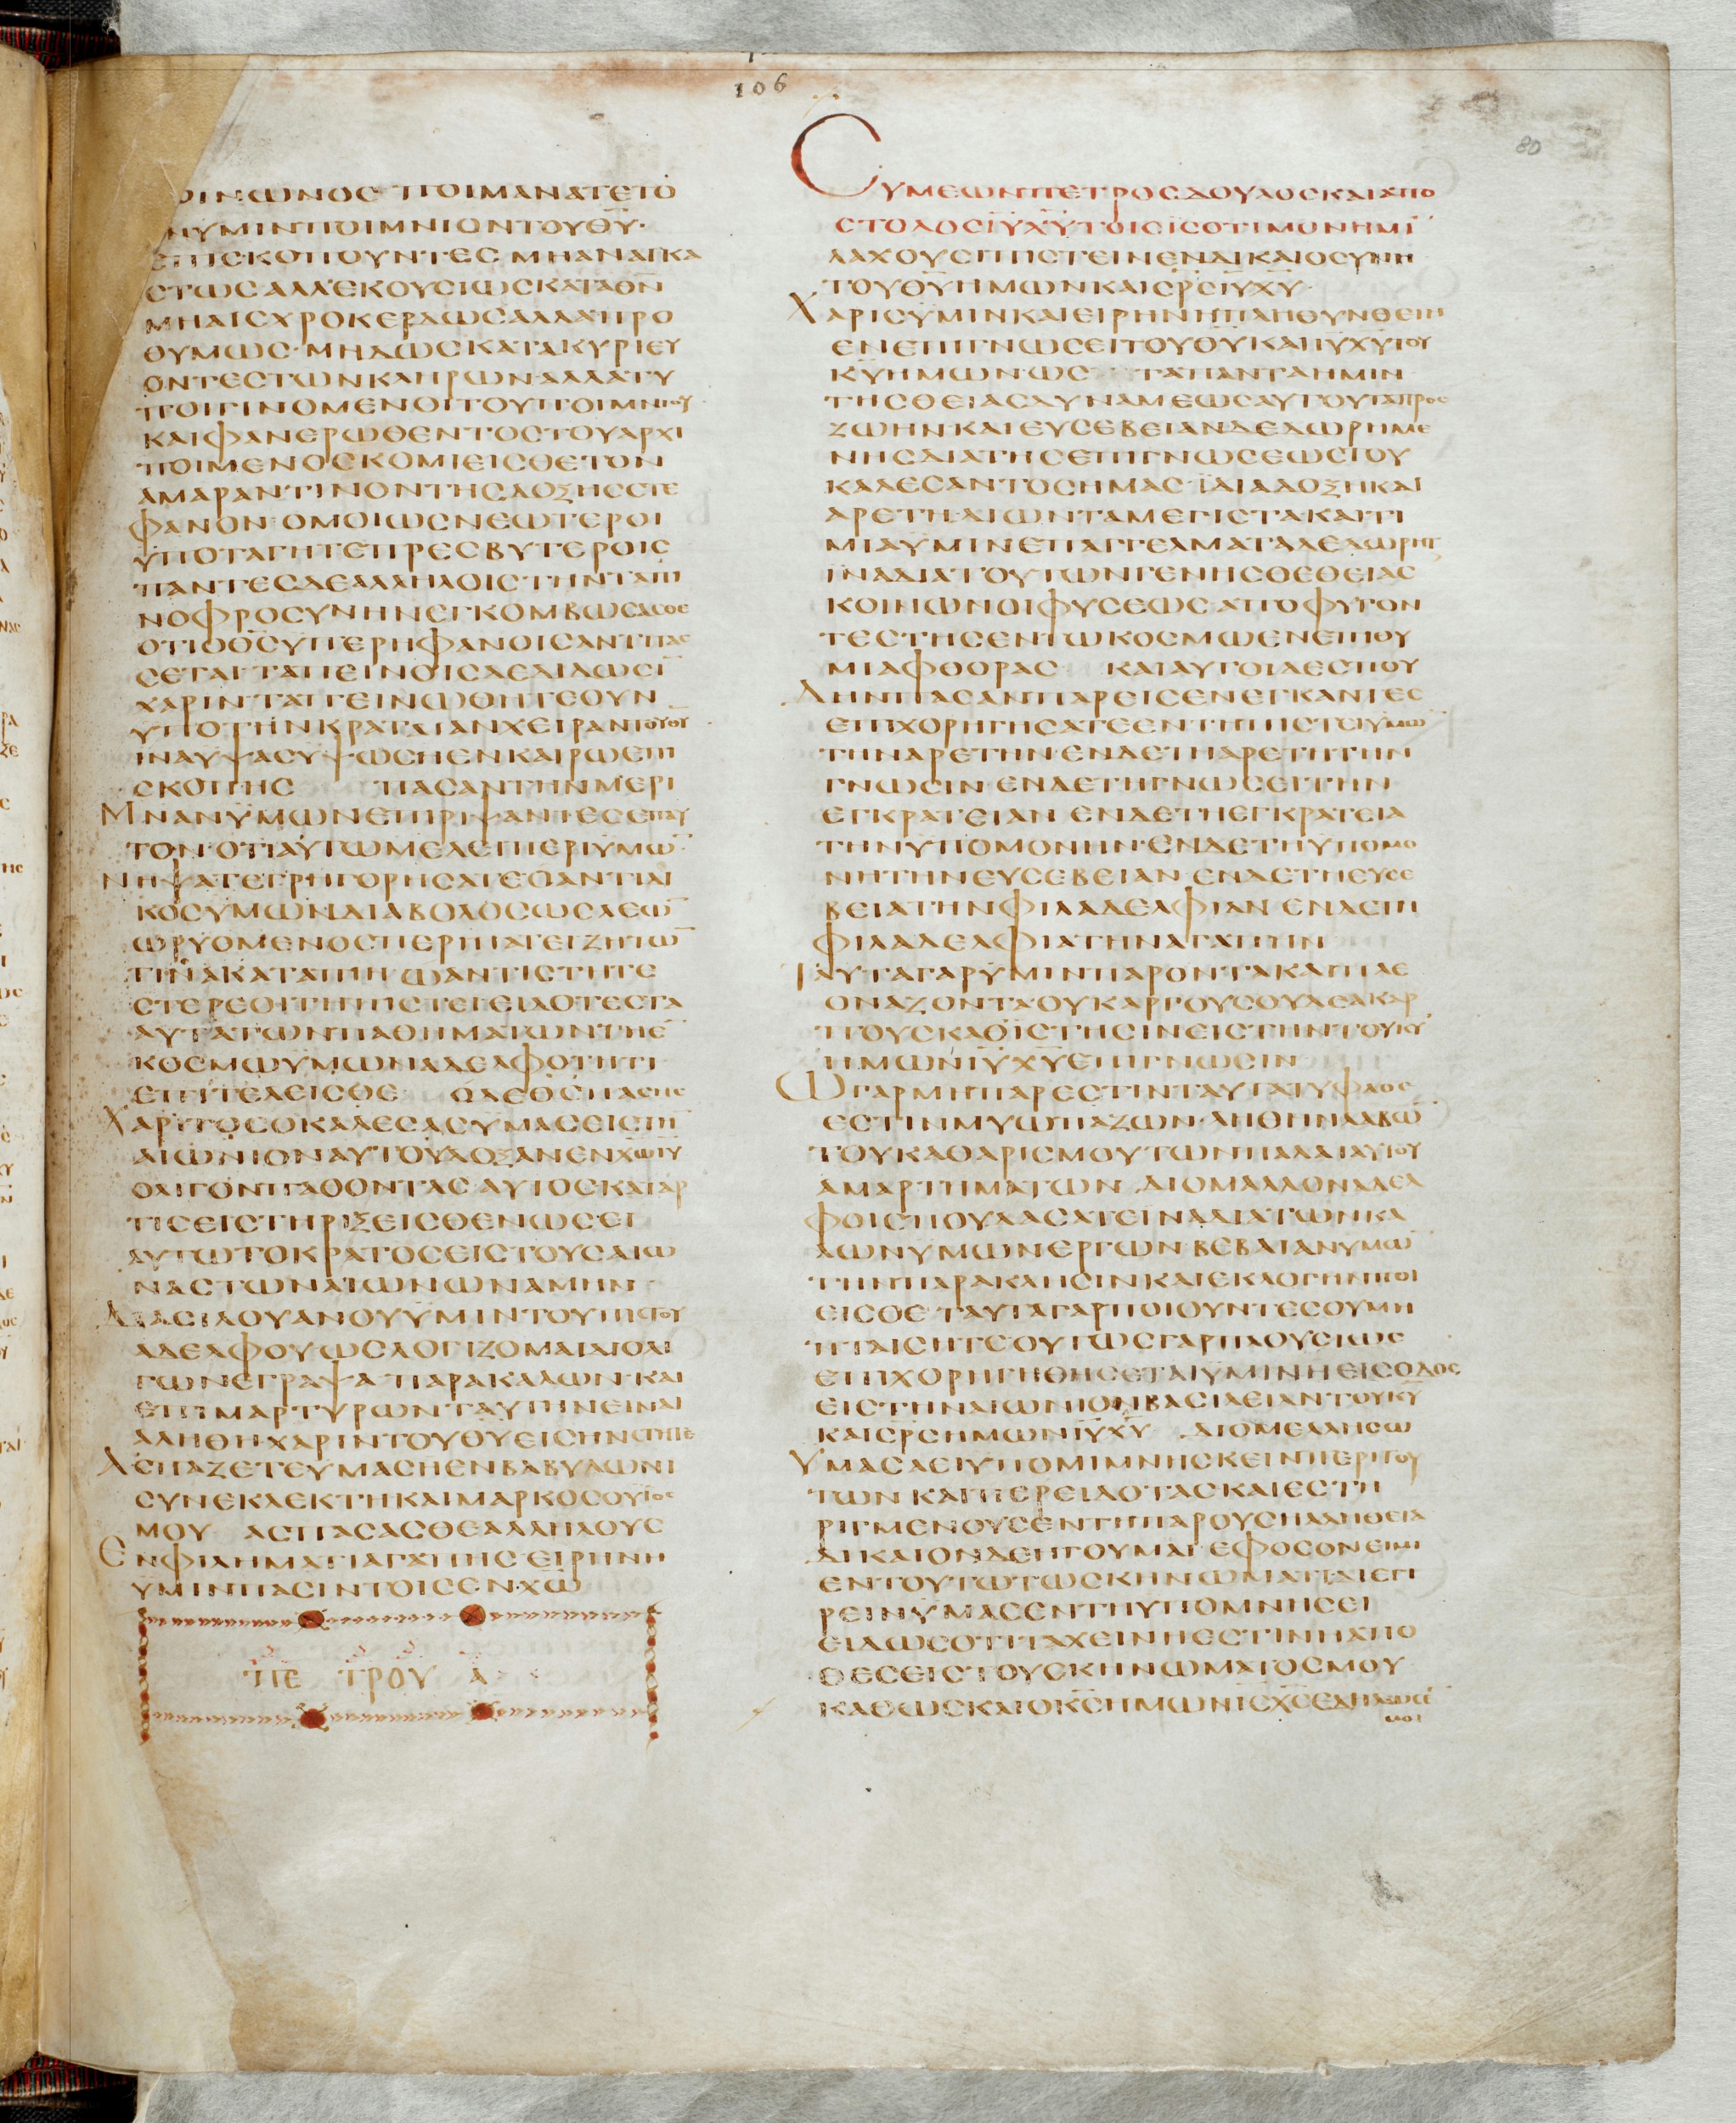 106
80
ΟΙΝΩΝΟΣ ΠΟΙΜΑΝΑΤΕΤΟ
ΝΥΜΙΝΠΟΙΜΝΙΟΝΤΟΥΘΥ·
ΕΠΙΣΚΟΠΟΥΝΤΕΣ ΜΗΑΝΑΓΚΑ
ΣΤΩΣΑΛΛΕΚΟΥΣΙΩΣΚΑΤΑΘΝ
ΜΗΑΙΣΧΡΟΚΕΡΔΩΣΑΛΛΑΠΡΟ
ΘΥΜΩΣ·ΜΗΔΩΣΚΑΤΑΚΥΡΙΕΥ
ΟΝΤΕΣΤΩΝΚΛΗΡΩΝ·ΑΛΛΑΤΥ
ΠΟΙΓΙΝΟΜΕΝΟΙΤΟΥΠΟΙΜΝΙΟΥ·
ΚΑΙΦΑΝΕΡΩΘΕΝΤΟΣΤΟΥΑΡΧΙ
ΠΟΙΜΕΝΟΣΚΟΜΙΕΙΣΘΕΤΟΝ
ΑΜΑΡΑΝΤΙΝΟΝΤΗΣΔΟΞΗΣΣΤΕ
ΦΑΝΟΝ· ΟΜΟΙΩΣΝΕΩΤΕΡΟΙ
ΫΠΟΤΑΓΗΤΕΠΡΕΣΒΥΤΕΡΟΙΣ
ΠΑΝΤΕΣΔΕΑΛΛΗΛΟΙΣΤΗΝΤΑΠΙ
ΝΟΦΡΟΣΥΝΗΝΕΓΚΟΜΒΩΣΑΣΘΕ
ΟΤΙΟΘΣΥΠΕΡΗΦΑΝΟΙΣΑΝΤΙΤΑΣ
ΣΕΤΑΙ·ΤΑΠΕΙΝΟΙΣΔΕΔΙΔΩΣΙ̅
ΧΑΡΙΝ ΤΑΠΕΙΝΩΘΗΤΕΟΥΝ
ΥΠΟΤΗΝΚΡΑΤΑΙΑΝΧΕΙΡΑΝΤΟΥΘΥ·
ΙΝΑΥΜΑΣΥΨΩΣΗΕΝΚΑΙΡΩΕΠΙ
ΣΚΟΠΗΣ ΠΑΣΑΝΤΗΝΜΕΡΙ
ΜΝΑΝΥΜΩΝΕΠΙΡΙΨΑΝΤΕΣΕΠΑΥ
ΤΟΝ·ΟΤΙΑΥΤΩΜΕΛΕΙΠΕΡΙΥΜΩ̅·
ΝΗΨΑΤΕΓΡΗΓΟΡΗΣΑΤΕΟΑΝΤΙΔΙ
ΚΟΣΥΜΩΝΔΙΑΒΟΛΟΣΩΣΛΕΩ̅
ΩΡΥΟΜΕΝΟΣΠΕΡΙΠΑΤΕΙΖΗΤΩ̅
ΤΙΝΑΚΑΤΑΠΙΗ ΩΑΝΤΙΣΤΗΤΕ
ΣΤΕΡΕΟΙΤΗΠΙΣΤΕΙΕΙΔΟΤΕΣΤΑ
ΑΥΤΑΤΩΝΠΑΘΗΜΑΤΩΝΤΗΕ̅
ΚΟΣΜΩΥΜΩΝΑΔΕΛΦΟΤΗΤΙ
ΕΠΙΤΕΛΕΙΣΘΕ ΟΔΕΘΣΠΑΣΗΣ
ΧΑΡΙΤΟΣΟΚΑΛΕΣΑΣΥΜΑΣΕΙΣΤΗ̅
ΑΙΩΝΙΟΝΑΥΤΟΥΔΟΞΑΝΕΝΧΩΙΥ
ΟΛΙΓΟΝΠΑΘΟΝΤΑΣ ΑΥΤΟΣΚΑΤΑΡ
ΤΙΣΕΙΣΤΗΡΙΞΕΙΣΘΕΝΩΣΕΙ
ΑΥΤΩΤΟΚΡΑΤΟΣΕΙΣΤΟΥΣΑΙΩ
ΝΑΣΤΩΝΑΙΩΝΩΝΑΜΗΝ
ΔΙΑΣΙΛΟΥΑΝΟΥΥΜΙΝΤΟΥΠΙΣΤΟΥ
ΑΔΕΛΦΟΥΩΣΛΟΓΙΖΟΜΑΙΔΙΟΛΙ
ΓΩΝΕΓΡΑΨΑ·ΠΑΡΑΚΑΛΩΝ·ΚΑΙ
ΕΠΙΜΑΡΤΥΡΩΝΤΑΥΤΗΝΕΙΝΑΙ
ΑΛΗΘΗΧΑΡΙΝΤΟΥΘΥΕΙΣΗΝΣΤΗΤΕ
ΑΣΠΑΖΕΤΕΥΜΑΣΗΕΝΒΑΒΥΛΩΝΙ
ΣΥΝΕΚΛΕΚΤΗΚΑΙΜΑΡΚΟΣΟΥΪΟΣ
ΜΟΥ ΑΣΠΑΣΑΣΘΕΑΛΛΗΛΟΥΣ
ΕΝΦΙΛΗΜΑΤΙΑΓΑΠΗΣ·ΕΙΡΗΝΗ
ΫΜΙΝΠΑΣΙΝΤΟΙΣΕΝ·ΧΩ̅
ΠΕΤΡΟΥ Α
ΣΥΜΕΩΝΠΕΤΡΟΣΔΟΥΛΟΣΚΑΙΑΠΟ
ΣΤΟΛΟΣΙΥΧΥ·ΤΟΙΣΙΣΟΤΙΜΟΝΗΜΙ̅
ΛΑΧΟΥΣΠΙΣΤΕΙΝΕΝΔΙΚΑΙΟΣΥΝΗ
ΤΟΥΘΥΗΜΩΝΚΑΙΣΡΣΙΥΧΥ·
ΧΑΡΙΣΥΜΙΝΚΑΙΕΙΡΗΝΗΠΛΗΘΥΝΘΕΙΗ
ΕΝΕΠΙΓΝΩΣΕΙΤΟΥΘΥΚΑΙΙΥΧΥΤΟΥ
ΚΥΗΜΩΝ·ΩΣ ΤΑΠΑΝΤΑΗΜΙΝ
ΤΗΣΘΕΙΑΣΔΥΝΑΜΕΩΣΑΥΤΟΥΤΑΠΡΟΣ
ΖΩΗΝΚΑΙΕΥΣΕΒΕΙΑΝΔΕΔΩΡΗΜΕ
ΝΗΣΔΙΑΤΗΣΕΠΙΓΝΩΣΕΩΣΤΟΥ
ΚΑΛΕΣΑΝΤΟΣΗΜΑΣ·ΪΔΙΑΔΟΞΗΚΑΙ
ΑΡΕΤΗ·ΔΙΩΝΤΑΜΕΓΙΣΤΑΚΑΙΤΙ
ΜΙΑΥΜΙΝΕΠΑΓΓΕΛΜΑΤΑΔΕΔΩΡΗΤ
ΪΝΑΔΙΑΤΟΥΤΩΝΓΕΝΗΣΘΕΘΕΙΑΣ
ΚΟΙΝΩΝΟΙΦΥΣΕΩΣ·ΑΠΟΦΥΓΟΝ
ΤΕΣΤΗΣΕΝΤΩΚΟΣΜΩΕΝΕΠΙΘΥ
ΜΙΑΦΘΟΡΑΣ ΚΑΙΑΥΤΟΙΔΕΣΠΟΥ
ΔΗΝΠΑΣΑΝΠΑΡΕΙΣΕΝΕΓΚΑΝΤΕΣ
ΕΠΙΧΟΡΗΓΗΣΑΤΕΕΝΤΗΠΙΣΤΙΥΜΩ̅
ΤΗΝΑΡΕΤΗΝ·ΕΝΔΕΤΗΑΡΕΤΗΤΗΝ
ΓΝΩΣΙΝ·ΕΝΔΕΤΗΓΝΩΣΕΙΤΗΝ
ΕΓΚΡΑΤΕΙΑΝ·ΕΝΔΕΤΗΕΓΚΡΑΤΕΙΑ
ΤΗΝΥΠΟΜΟΝΗΝ·ΕΝΔΕΤΗΥΠΟΜΟ
ΝΗΤΗΝΕΥΣΕΒΕΙΑΝ·ΕΝΔΕΤΗΕΥΣΕ
ΒΕΙΑΤΗΝΦΙΛΑΔΕΛΦΙΑΝ·ΕΝΔΕΤΗ
ΦΙΛΑΔΕΛΦΙΑΤΗΝΑΓΑΠΗΝ
ΤΑΥΤΑΓΑΡΥΜΙΝΠΑΡΟΝΤΑΚΑΙΠΛΕ
ΟΝΑΖΟΝΤΑΟΥΚΑΡΓΟΥΣΟΥΔΕΑΚΑΡ
ΠΟΥΣΚΑΘΙΣΤΗΣΙΝΕΙΣΤΗΝΤΟΥΚΥ
ΗΜΩΝΙΥΧΥΕΠΙΓΝΩΣΙΝ
ΩΓΑΡΜΗΠΑΡΕΣΤΙΝΤΑΥΤΑΤΥΦΛΟΣ
ΕΣΤΙΝΜΥΩΠΑΖΩΝ·ΛΗΘΗΝΛΑΒΩ̅
ΤΟΥΚΑΘΑΡΙΣΜΟΥΤΩΝΠΑΛΑΙΑΥΤΟΥ
ΑΜΑΡΤΗΜΑΤΩΝ·ΔΙΟΜΑΛΛΟΝΑΔΕΛ
ΦΟΙΣΠΟΥΔΑΣΑΤΕΙΝΑΔΙΑΤΩΝΚΑ
ΛΩΝΥΜΩΝΕΡΓΩΝ·ΒΕΒΑΙΑΝΥΜΩ̅
ΤΗΝΠΑΡΑΚΛΗΣΙΝΚΑΙΕΚΛΟΓΗΝΠΟΙ
ΕΙΣΘΕ·ΤΑΥΤΑΓΑΡΠΟΙΟΥΝΤΕΣΟΥΜΗ
ΠΤΑΙΣΗΤΕΟΥΤΩΣΓΑΡΠΛΟΥΣΙΩΣ
ΕΠΙΧΟΡΗΓΗΘΗΣΕΤΑΙΥΜΙΝΗΕΙΣΟΔΟΣ
ΕΙΣΤΗΝΑΙΩΝΙΟΝΒΑΣΙΛΕΙΑΝΤΟΥΚΥ
ΚΑΙΣΡΣΗΜΩΝΙΥΧΥ ΔΙΟΜΕΛΛΗΣΩ
ΥΜΑΣΑΕΙΥΠΟΜΙΜΝΗΣΚΕΙΝΠΕΡΙΤΟΥ
ΤΩΝ·ΚΑΙΠΕΡΕΙΔΟΤΑΣΚΑΙΕΣΤΗ
ΡΙΓΜΕΝΟΥΣΕΝΤΗΠΑΡΟΥΣΗΑΛΗΘΕΙΑ
ΔΙΚΑΙΟΝΔΕΗΓΟΥΜΑΙ·ΕΦΟΣΟΝΕΙΜΙ
ΕΝΤΟΥΤΩΤΩΣΚΗΝΩΜΑΤΙΔΙΕΓΙ
ΡΕΙΝΥΜΑΣΕΝΤΗΥΠΟΜΝΗΣΕΙ
ΕΙΔΩΣΟΤΙΤΑΧΕΙΝΗΕΣΤΙΝΗΑΠΟ
ΘΕΣΕΙΣΤΟΥΣΚΗΝΩΜΑΤΟΣΜΟΥ
ΚΑΘΩΣΚΑΙΟΚΣΗΜΩΝΙΣΧΣΕΔΗΛΩΣΕ̅
ΜΟΙ